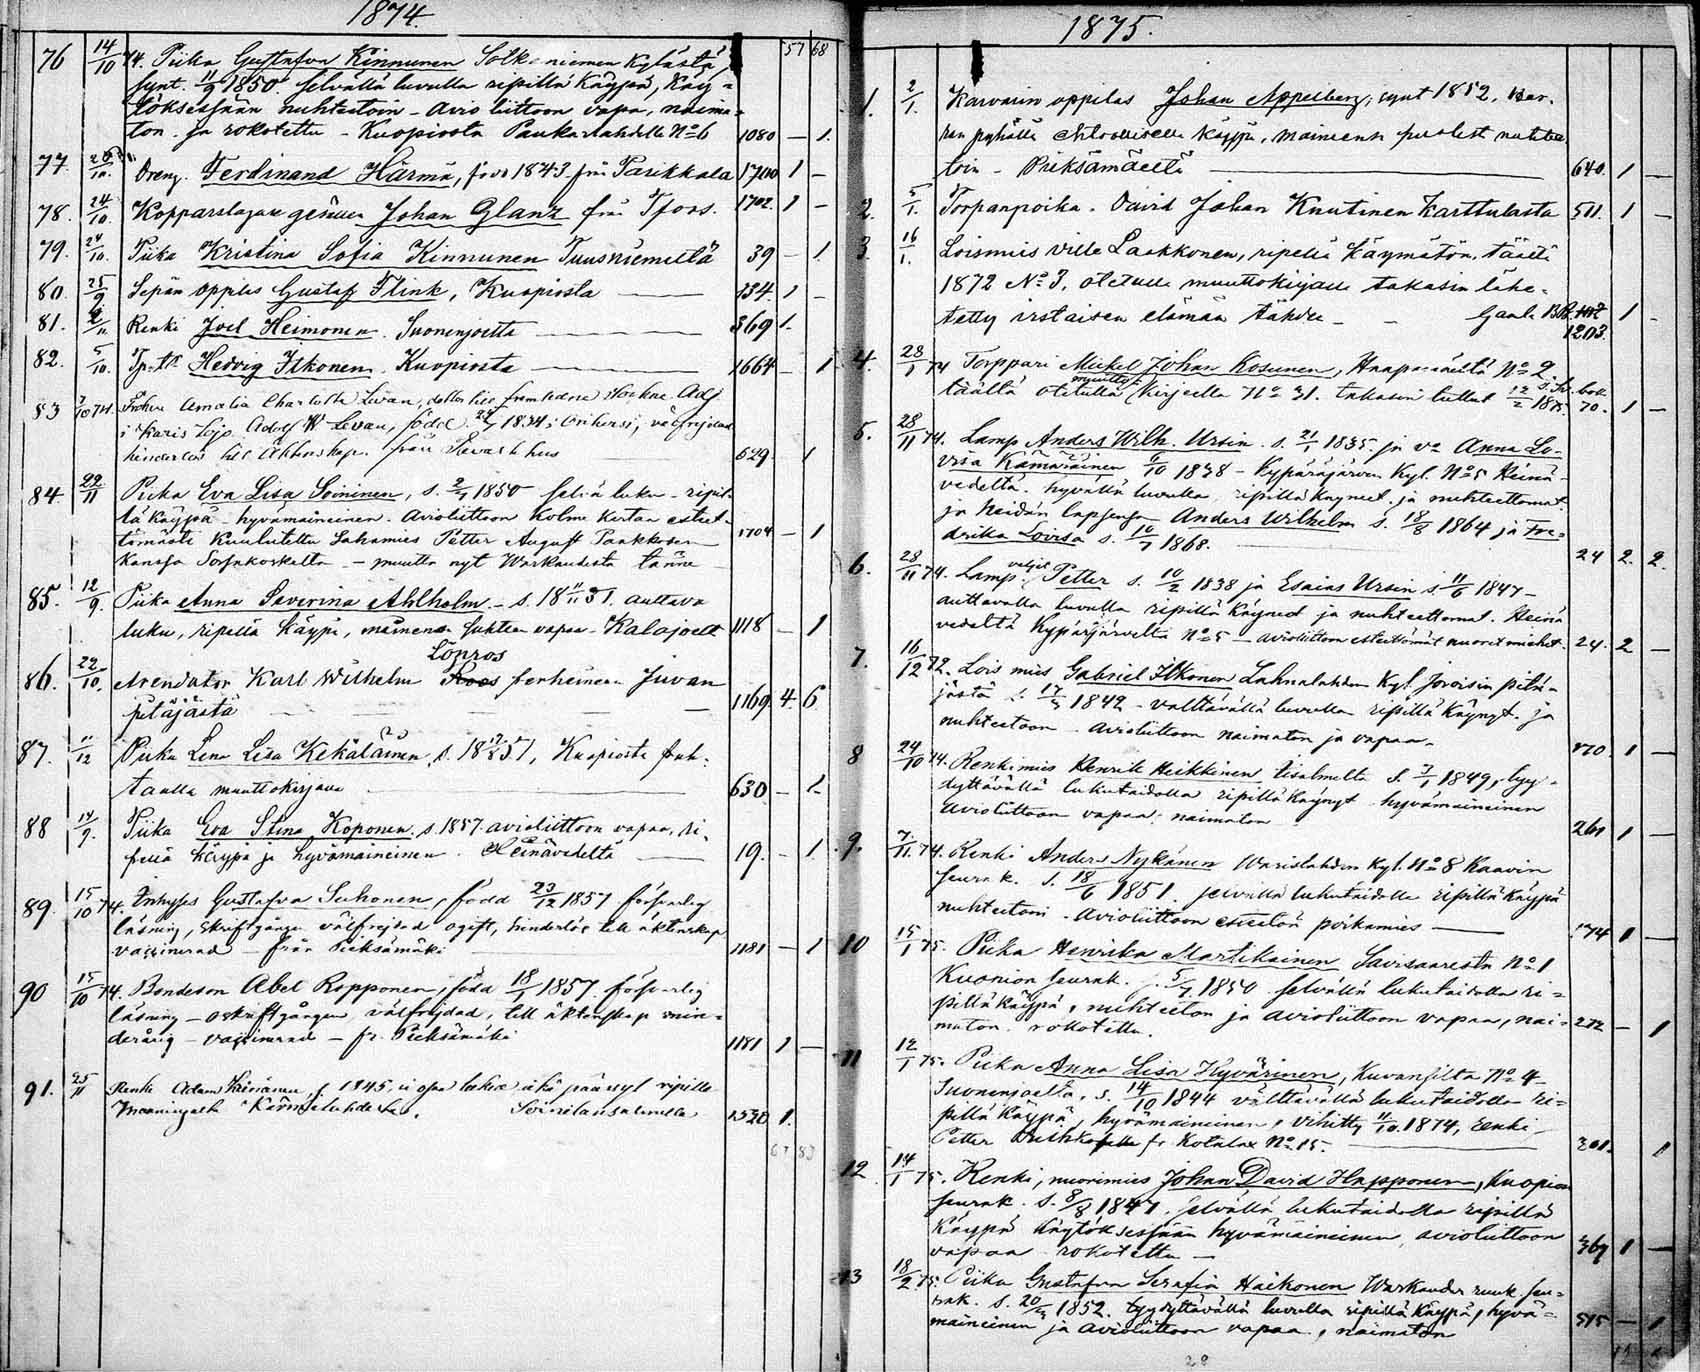 1874.
57 68
76 14/10 74. Piika Gustafva Kinnunen Solkeniemen Kylästä,
synt. 11/9 1850 selvällä luvulla ripillä käypä, Käy-
töksessään nuhteetoin - Avioliittoon vapa, naima-
ton ja rokotettu - Kuopiosta Paukarlahdelle No 6 1080 — 1.
77. Dreng. Ferdinand Härmä, född 1843 från Parikkala 1700 1 —
78. 24/10. Kopparslagare gesällen Johan Glanz från Tfors. 1702. 1 —
79. 24/10. Piika Kristina Sofia Kinnunen Tuusniemeltä 39 — 1
80. 25/9 Sepän oppilas Gustaf Flink, Kuopiosta 334. 1 —
81. 2/11 Renki Joel Heimonen Suonenjoelta 369 1.
82. 5/10. Hedvig Itkonen Kuopiosta 1664 — 1
83 Fröken Amalia Charlotta Levan, dotter till framledne Adj
i Karis Lojo Adolf W Levan, född 1834, välfrejdad
hinderlös till Äktenskap. från 629. 1
84. 22/11 Piika Eva Lisa Soininen, s. 2/1 1850 selvä luku - ripil-
lä käypä hyvämaineinen. Avioliittoon kolme kertaa esteet-
tömästi kuulutettu Sahamies Petter August Paukkosen 1704 — 1
kanssa Sorsakoskelta - muutta nyt Warkaudesta tänne
85. 12/9. Piika Anna Severina Ahlholm - s. 18 11/11 31. auttava
luku, ripillä käypä, vapa - Kalajoelt 1118 — 1
Lönros
86. 22/10. Arendator Karl Wilhelm Roos perheineen Juvan
pitäjästä 1169 4. 6
87. 11/12 Piika Lena Lisa Kekäläinen, s. 57, Kuopiosta
taulla muuttokirjava 630 — 1
88 14/9. Piika Eva Stina Koponen. s. 1857 avioliittoon vapaa, ri-
pillä käypä ja hyvämaineinen. Heinävedeltä 19. — 1
89. 15/10 74. Inhyses Gustafva Suhonen, född 23/12 1857 försvarlig
läsning, skriftgången välfrejdad ogift, hinderlös till äktenskap
vaccinerad - från Pieksämäki 1181 — 1
90 15/10 74. Bondeson Abel Ropponen, född 18/1 1857 försvarlig
läsning - skriftgången välfrejdad, till äktenskap min-
derårig - vaccinerad - fr. Pieksämäki 1181 1 —
91. 25/11 Renki Adam 1845, ei osaa lukea eikä päässyt ripille
1520 1.
1875.
1. 2/1. Karvarin oppilas Johan Appelberg, synt 1852, Her-
ran pyhällä ehtoollisella käypä, maineensa puolest nuhtee-
toin - Pieksämäeltä 640. 1 —
2. 5/1. Torpanpoika David Johan Knutinen Karttulasta 511. 1 —
3. 16/1. Loismies Ville Laakkonen, ripillä käymätön, täältä
1872 No 3, otetulla muuttokirjalla takasin lähe-
tetty irstaisen elämän tähden 1 —
1203.
4. 28/1 74 Torppari Mickel Johan Kosunen, No 2
täältä otetulla muutto kirjeella No 31. takasin tullut 12/2 1875. 70. 1 —
5. 28/11 74. Lamp. Anders Wilh. Ursin s. 21/1 1835 ja vo Anna Lo-
visa Kämäräinen 6/10 1838 - Kypäräjärven Kyl. No 5 Heinä-
vedeltä. hyvällä luvulla, ripillä käyneet ja nuhteettomat
ja heidän lapsensa Anders Wilhelm s. 18/8 1864 ja Fre-
drika Lovisa s. 10/7 1868. 24 2. 2.
6. 28/11 74. Lamp. veljet Petter s. 10/2 1838 ja Esaias Ursin s. 11/6 1847 -
auttavalla luvulla ripillä käyneet ja nuhteettomat. Heinä
vedeltä Kypäräjärveltä No 5 - avioliittoon esteettömät nuoret miehet. 24. 2 —
7. 16/12 72. Lois mies Gabriel Itkonen Lahnalahden Kyl. Joroisin pitä-
jästä s. 1842 - välttävällä luvulla ripillä käynyt ja
nuhteetoon Avioliittoon naimaton ja vapaa. 870. 1 —
8 24/10 74. Renkimies Henrik Heikkinen Iisalmelta s. 7/1 1849, tyy-
dyttävällä lukutaidolla ripillä käynyt hyvämaineinen
Avioliittoon vapaa, naimaton 261 1 —
9. 7/11 74. Renki Anders Nykänen Warislahden Kyl. No 8 Kaavin
seurak. s. 18/6 1851. selvällä lukutaidolla ripillä käypä
nuhteetoin - Avioliittoon esteetön poikamies 174 1 —
10 15/1 75. Piika Henrika Martikainen Savisaaresta No 1
Kuopion seurak. s. 5/7 1850 selvällä lukutaidolla ri-
pillä käypä, nuhteeton ja avioliittoon vapaa, nai-
maton rokotettu. 272 — 1
11 12/1 75. Piika Anna Lisa Hyvärinen, No 4
Suonenjoelta, s. 14/10 1844 välttävällä lukutaidolla ri-
pillä käypä, hyvämaineinen, vihitty 11/10 1874, renki
Petter fr Kotalax No 15. 301. 1
12 14/1 75. Renki, nuorimies Johan David Happonen, Kuopion
seurak. s. 8/8 1847. selvällä lukutaidolla ripillä
käypä käytöksessään hyvämaineinen, avioliittoon
vapaa rokotettu 367 1 —
13 18/2 75. Piika Gustafva Serafia Haikonen Warkauden ruuk. seu-
rak. s. 1852. tyydyttävällä luvulla ripillä käypä, hyvä-
maineinen ja avioliittoon vapaa, naimaton 515 — 1